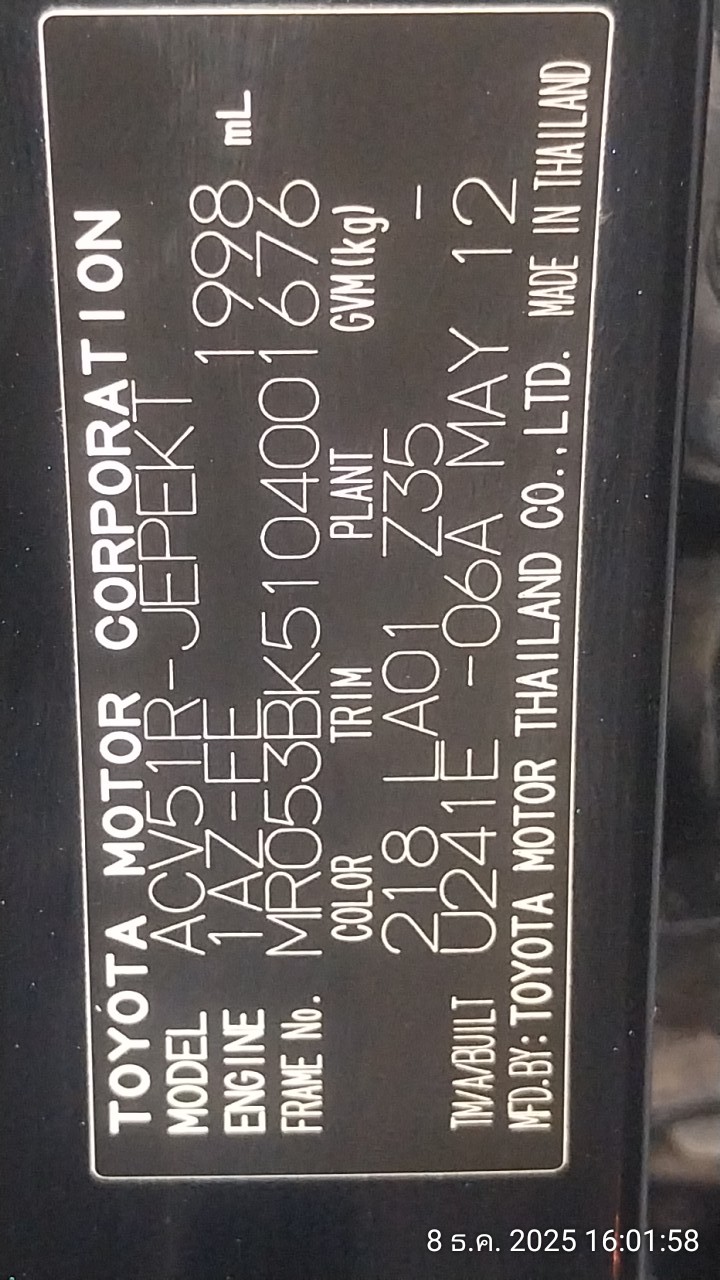 TOYOTA MOTOR CORPORATION
MODEL ACV51R-JEPEKT
ENGINE 1AZ-FE 1998 mL
FRAME No. MR053BK5104001676
COLOR TRIM PLANT GVM(kg)
218 LA01 Z35 -
TM/A/BUILT U241E -06A MAY 12
MFD.BY: TOYOTA MOTOR THAILAND CO.,LTD. MADE IN THAILAND
8 ธ.ค. 2025 16:01:58